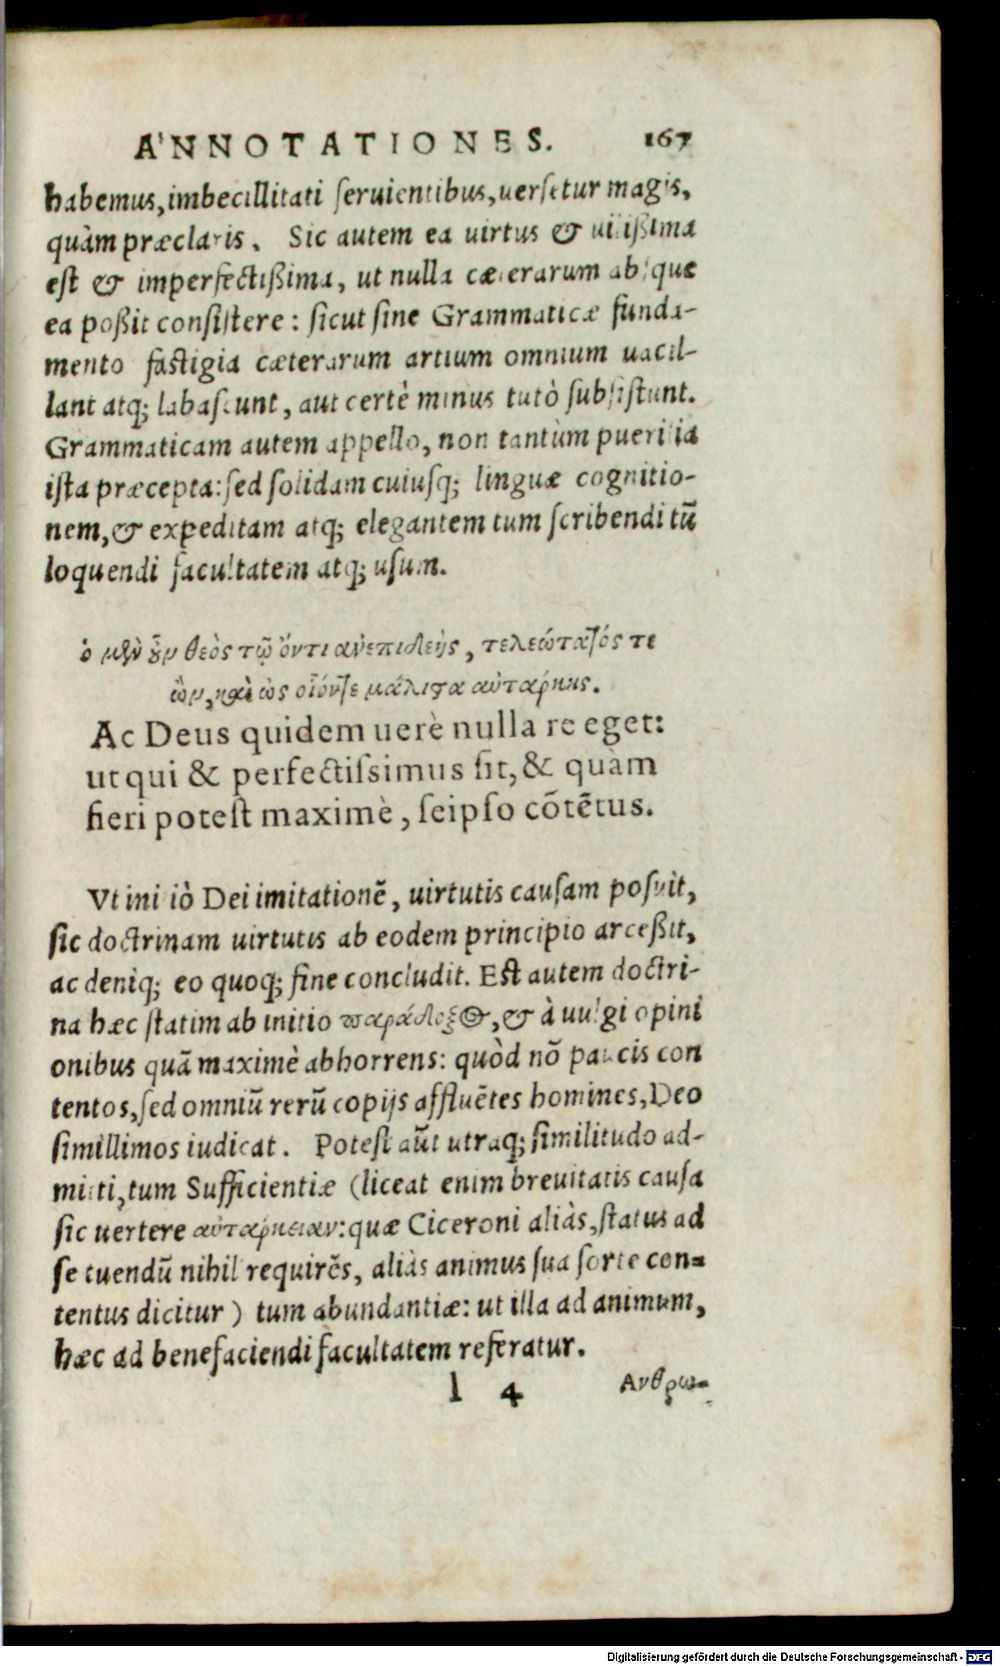 ANNOTATIONES. 167
habemus, imbecillitati seruientibus, uersetur magis,
quàm præclaris. Sic autem ea uirtus & uilißima
est & imperfectißima, ut nulla cæterarum absque
ea poßit consistere: sicut sine Grammaticæ funda-
mento fastigia cæterarum artium omnium uacil-
lant atq; labascunt, aut certè minus tutò subsistunt.
Grammaticam autem appello, non tantùm puerilia
ista præcepta: sed solidam cuiusq; linguæ cognitio-
nem, & expeditam atq; elegantem tum scribendi tū
loquendi facultatem atq; usum.
ὁ μὲν οὖν θεὸς τῷ ὄντι ἀνεπιδεὴς, τελεώτατός τε
ὢν, καὶ ὡς οἷόντε μάλιϛα αὐτάρκης.
Ac Deus quidem uerè nulla re eget:
ut qui & perfectissimus sit, & quàm
fieri potest maximè, seipso cōtētus.
Vt initiò Dei imitationē, uirtutis causam posuit,
sic doctrinam uirtutis ab eodem principio arceßit,
ac deniq; eo quoq; fine concludit. Est autem doctri-
na hæc statim ab initio παράδοξος, & à uulgi opini
onibus quā maximè abhorrens: quòd nō paucis con
tentos, sed omniū rerū copijs affluētes homines, Deo
simillimos iudicat. Potest aūt utraq; similitudo ad-
mitti, tum Sufficientiæ (liceat enim breuitatis causa
sic uertere αὐτάρκειαν: quæ Ciceroni aliàs, status ad
se tuendū nihil requirēs, aliàs animus sua sorte con-
tentus dicitur) tum abundantiæ: ut illa ad animum,
hæc ad benefaciendi facultatem referatur.
l 4 Ανθρω-
Digitalisierung gefördert durch die Deutsche Forschungsgemeinschaft - DFG